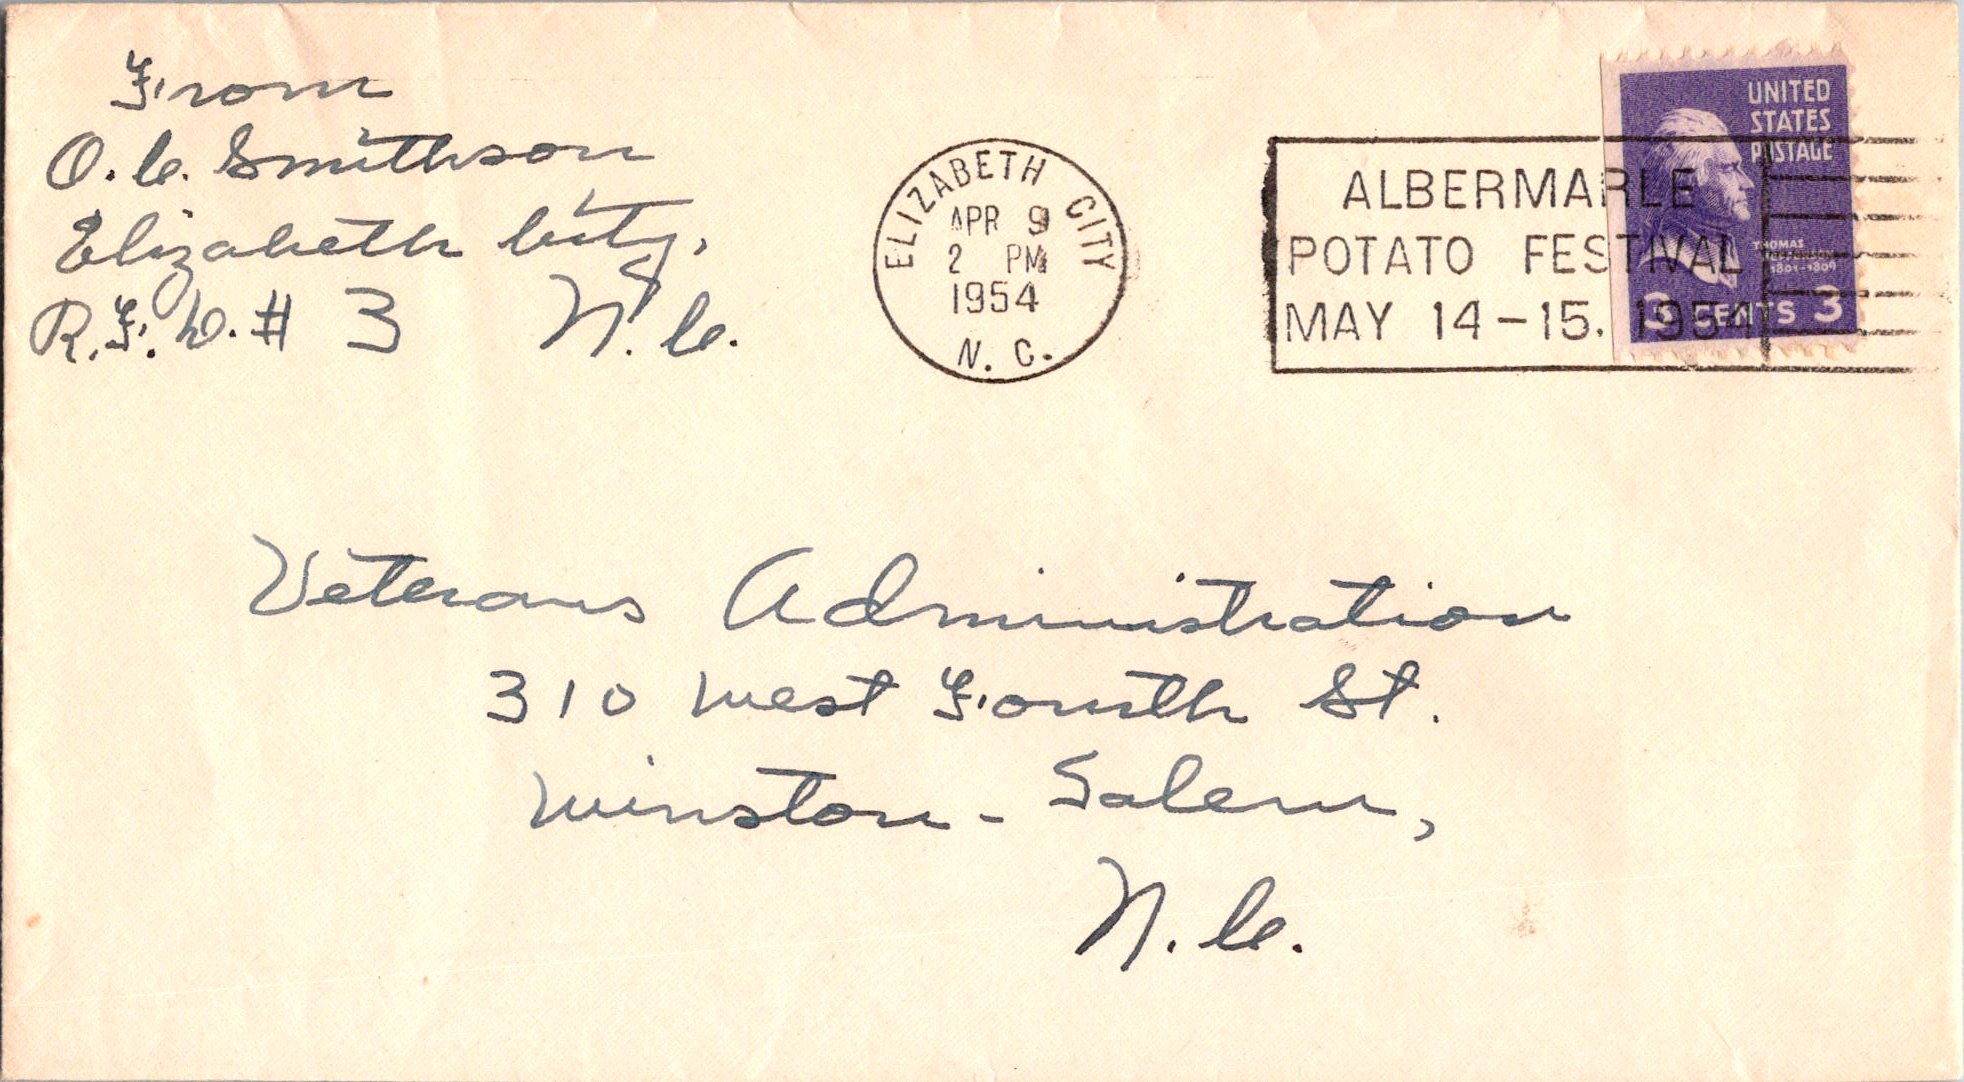 From
O. C. Smithson
Elizabeth City,
R.F.D. # 3 N.C.
ELIZABETH CITY
APR 9
2 PM
1954
N. C.
ALBERMARLE
POTATO FESTIVAL
MAY 14-15. 1954
UNITED
STATES
POSTAGE
THOMAS
JEFFERSON
1801-1809
3 CENTS 3
Veterans Administration
310 West Fourth St.
Winston-Salem,
N.C.